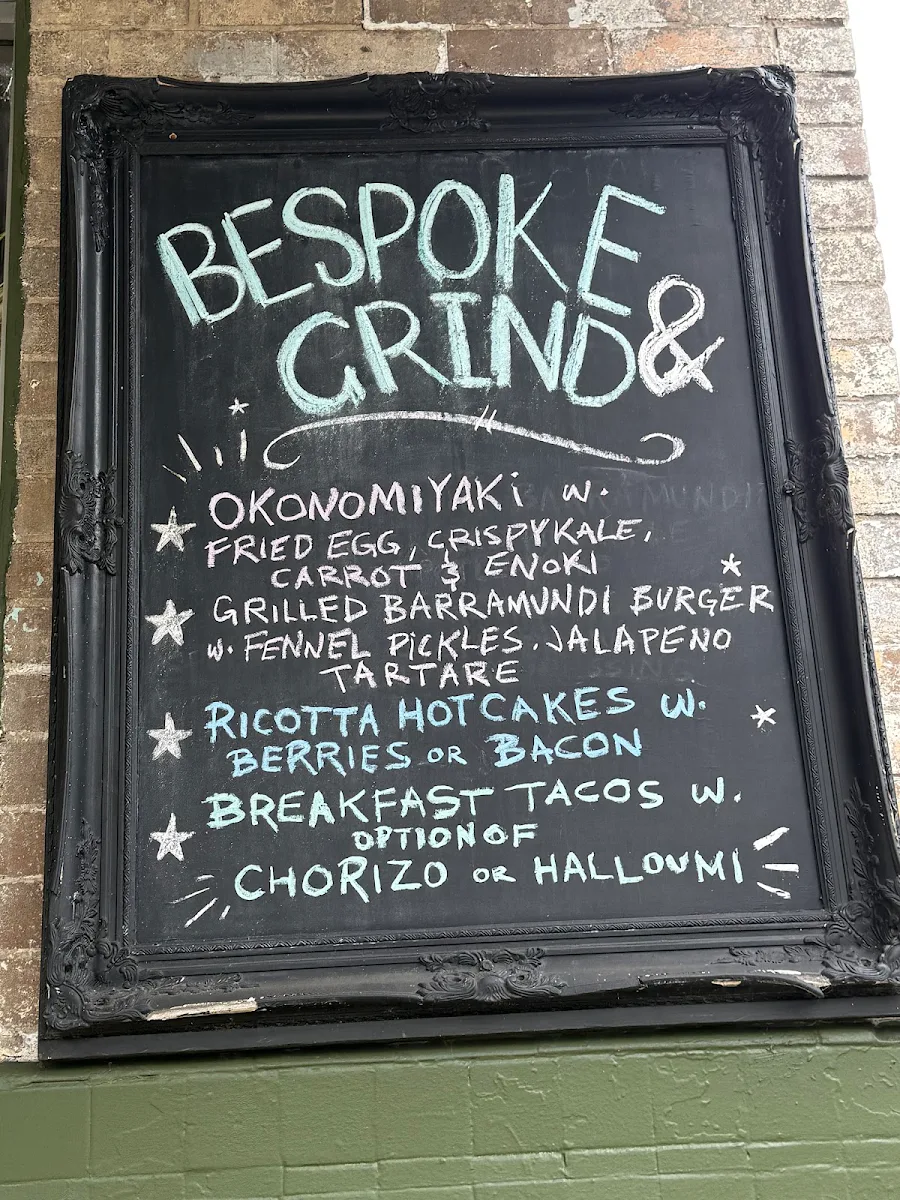 BESPOKE
GRIND &
OKONOMIYAKi w.
FRIED EGG, CRISPY KALE,
CARROT & ENOKI
GRILLED BARRAMUNDI BURGER
w. FENNEL PiCKLES. JALAPENO
TARTARE
RICOTTA HOTCAKES w.
BERRIES OR BACON
BREAKFAST TACOS w.
OPTION OF
CHORIZO OR HALLOUMI